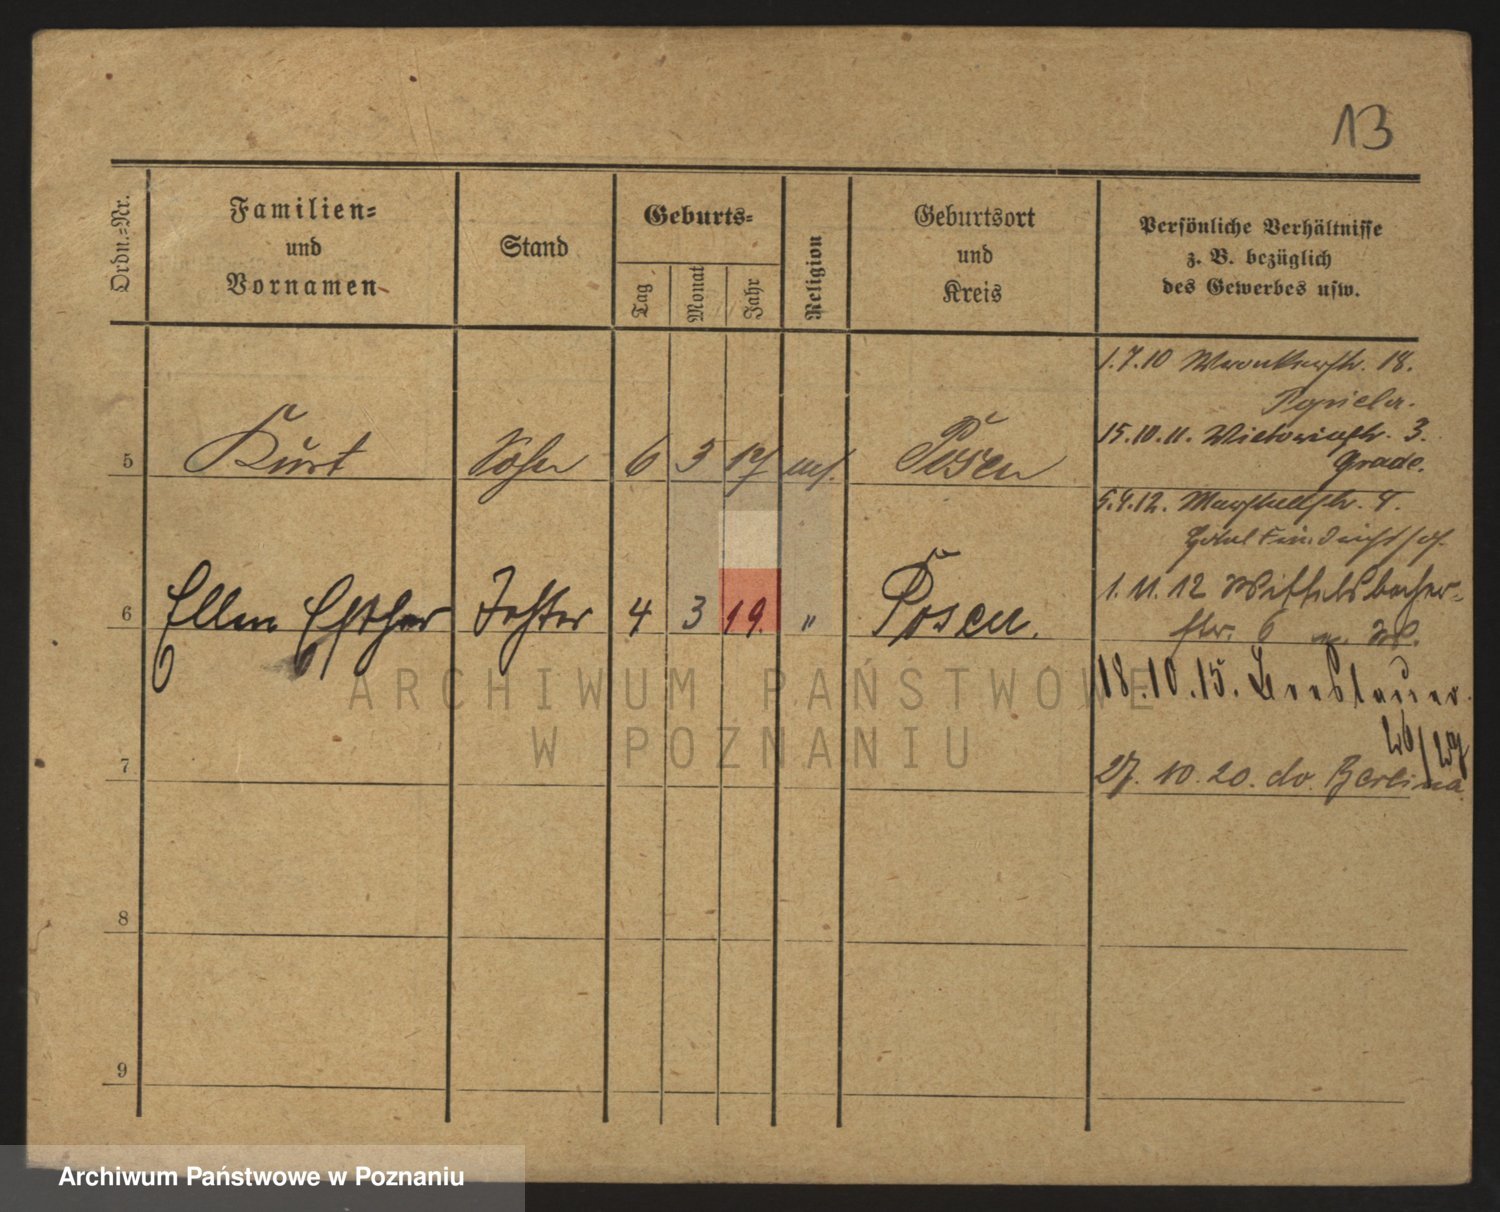 13
Ordn.=Nr.
Familien=
und
Vornamen
Stand
Geburts=
Tag
Monat
Jahr
Religion
Geburtsort
und
Kreis
Persönliche Verhältnisse
z. B. bezüglich
des Gewerbes usw.
1.7.10 Wronkerstr. 18.
15.10.11. Victoriastr. 3.
Grade.
5 Kurt Sohn 6 3 17 mos. Posen
5.4.12. Marstallstr. 8.
1.11.12 Wittelsbacher-
6 Ellen Esther Tochter 4 3 19. " Posen.
str. 6
18.10.15. Breslauer
26/27
7
27.10.20. do. Berlin
8
9
ARCHIWUM PAŃSTWOWE
W POZNANIU
Archiwum Państwowe w Poznaniu